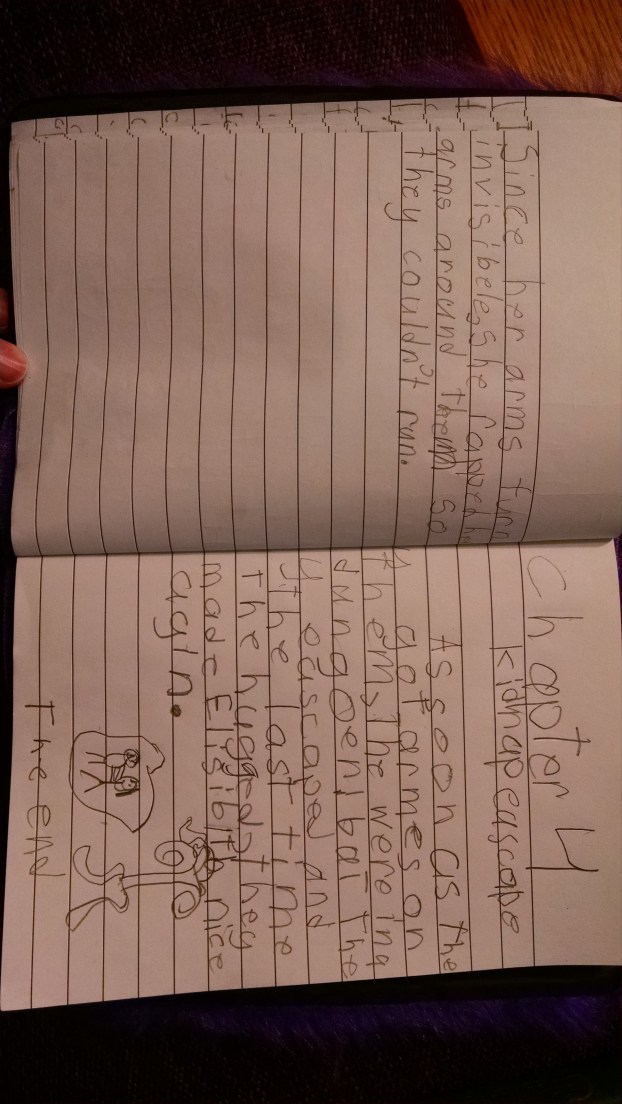 Since her arms turn
invisibele, she rapped h
arms around them so
they couldn't run.
Chapter 4
kidnap eascape
As soon as the
y got armes on
them, The were ina
dungoen, bat the
y eascaped and
the last time
the hugged, they
made Elisibith nice
agin.
The END